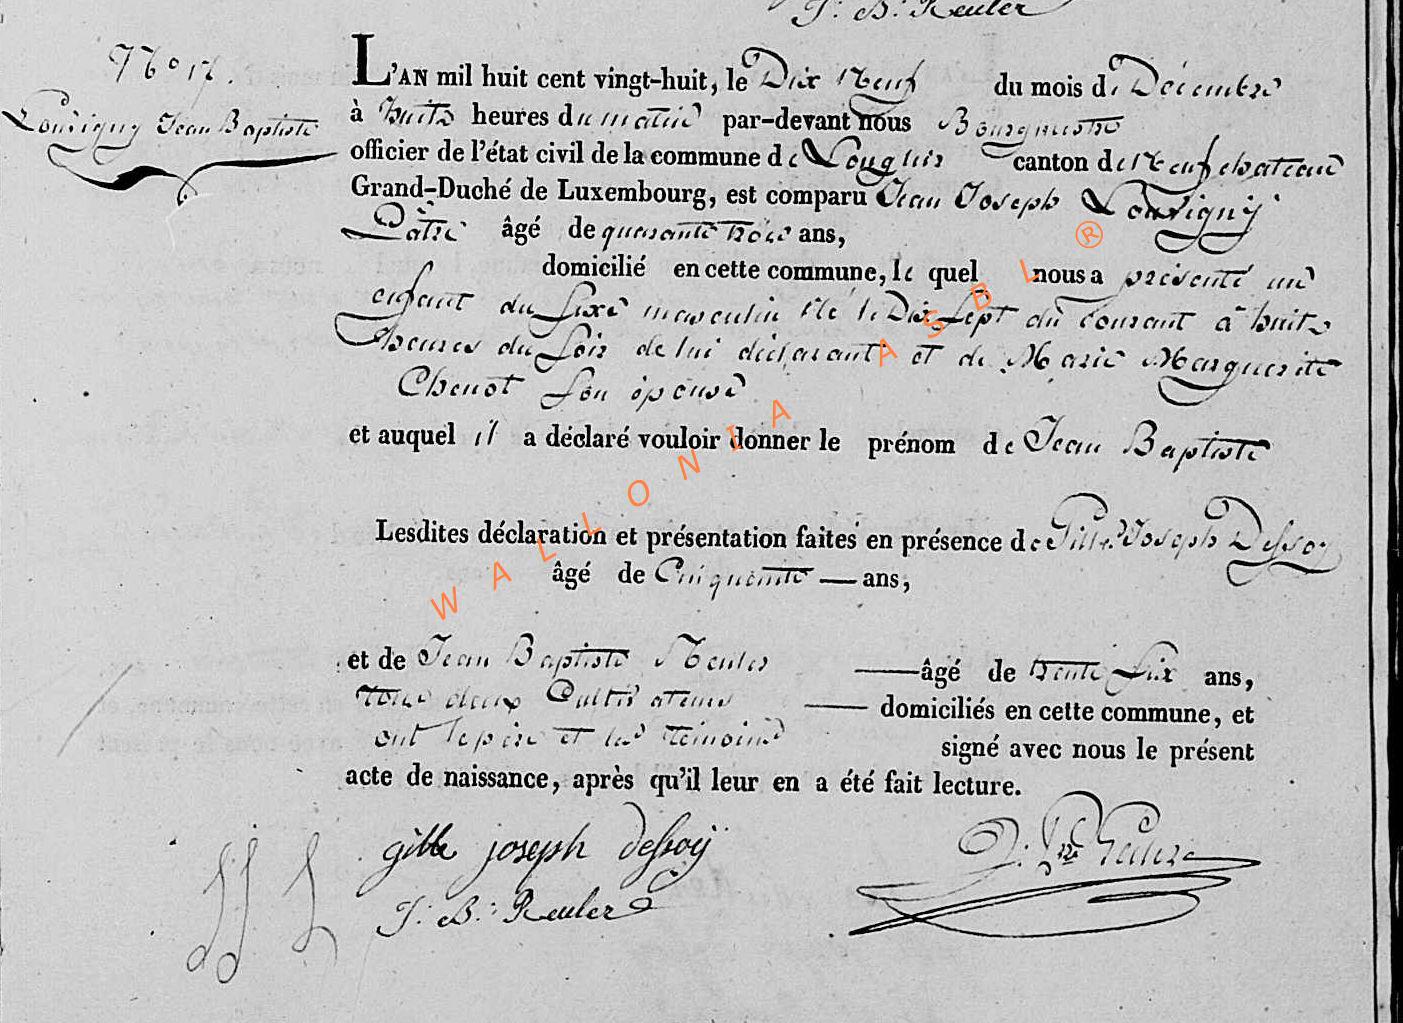 J: B: Reuler
N° 17.
Louvigny Jean Baptiste
L'AN mil huit cent vingt-huit, le Dix Neuf du mois de Décembre
à huits heures du matin par-devant nous Bourgmestre
officier de l'état civil de la commune de Longlier canton de Neufchateau
Grand-Duché de Luxembourg, est comparu Jean Joseph Louvigny
Pâtre âgé de quarante trois ans,
domicilié en cette commune, le quel nous a présenté un
enfant du sexe masculin Né le Dix sept du courant à huits
heures du soir de lui déclarant et de Marie Marguerite
Chenot son épouse
et auquel il a déclaré vouloir donner le prénom de Jean Baptiste
Lesdites déclaration et présentation faites en présence de Gille Joseph Dessoy
âgé de Cinquante — ans,
et de Jean Baptiste Reuler — âgé de trente six ans,
tous deux Cultivateurs — domiciliés en cette commune, et
ont le père et les témoins signé avec nous le présent
acte de naissance, après qu'il leur en a été fait lecture.
gille joseph dessoÿ
J: B: Reuler
WALLONIA ASBL ®